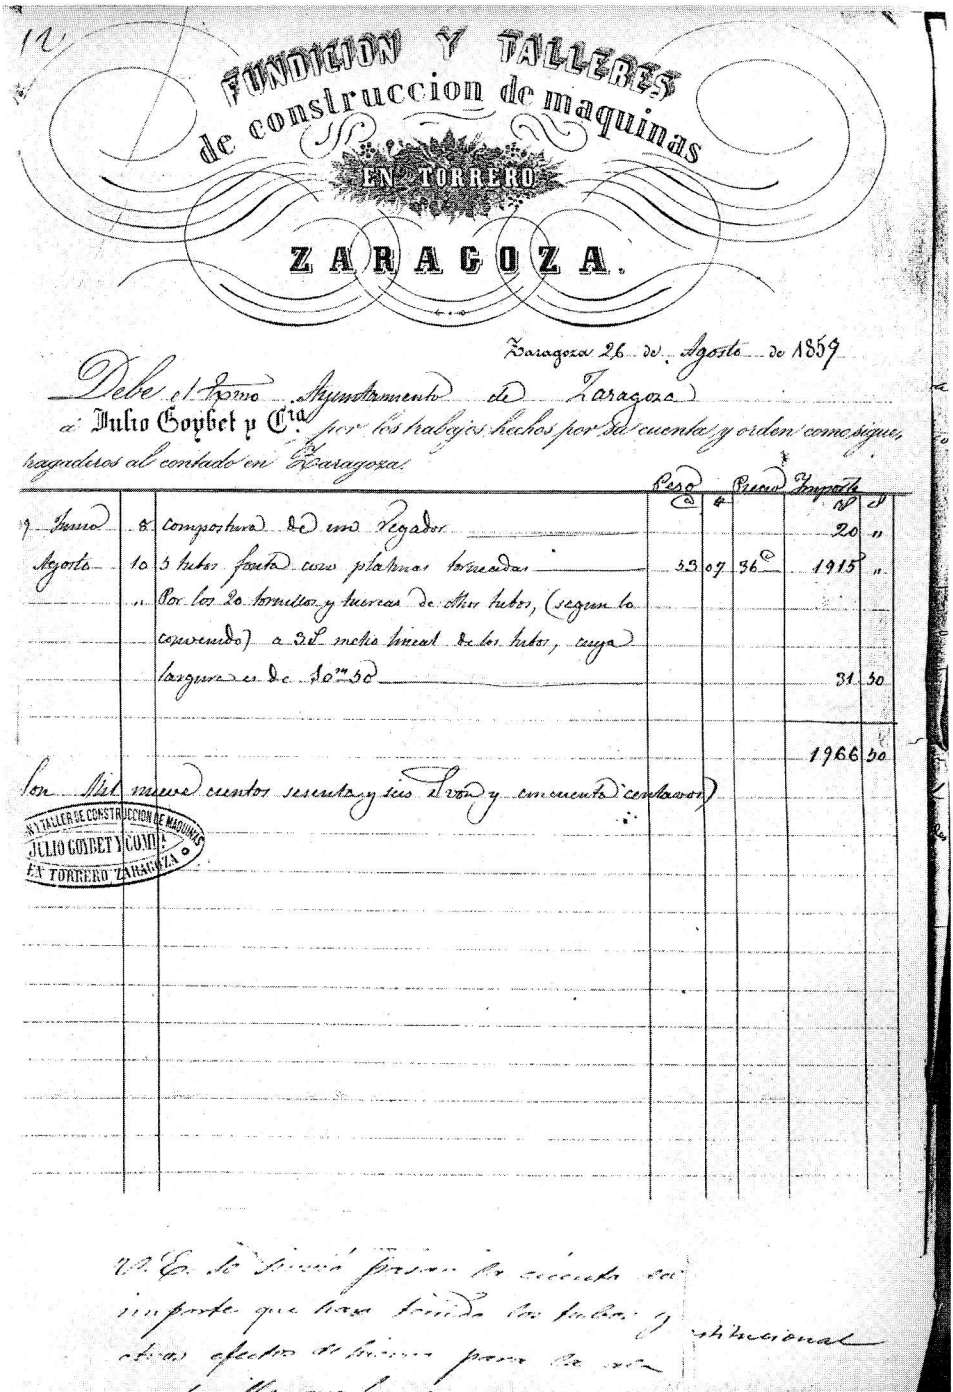 12
FUNDICION Y TALLERES
de construccion de maquinas
EN TORRERO
ZARAGOZA.
Zaragoza 26 de Agosto de 1859
Debe el Exmo Ayuntamiento de Zaragoza
á Julio Goybet y Cia. por los trabajos hechos por su cuenta y orden como sigue,
pagaderos al contado en Zaragoza.
Peso Precio Importe
Junio 8 compostura de un regador 20 "
Agosto 10 5 tubos fonta con platinas torneadas 53 07 36 1915 "
" Por los 20 tornillos y tuercas de dhos tubos, (segun lo
convenido) a 3 metro lineal de los tubos, cuya
largura es de 10m 50 31 50
1966 50
Son Mil nueve cientos sesenta y seis rvon y cincuenta centavos)
N Y TALLER DE CONSTRUCCION DE MAQUINAS
JULIO GOYBET Y COMP.A
EN TORRERO ZARAGOZA
V. E. se sirvió pasar la cuenta del
importe que han tenido los tubos y
otros efectos de hierro para la
stitucional